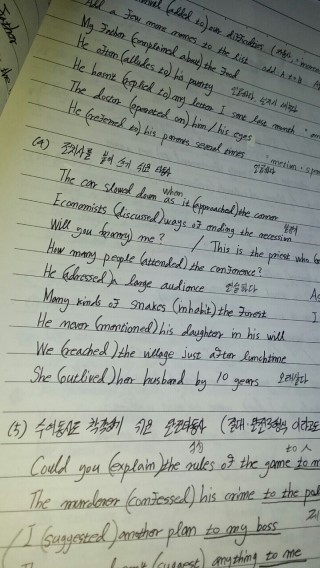 Add a few more names to the list
My father (complained about) the food
He often (alludes to) his poverty
He hasn't (replied to) my letter I sent last month
The doctor (operated on) him / his eyes
He (referred to) his parents several times
(4)
The car slowed down when as it (approached) the corner
Economists (discussed) ways of ending the recession
Will you (marry) me? / This is the priest who
How many people (attended) the conference?
He (adressed) a large audience 연설하다
Many kinds of snakes (inhabit) the forest
He never (mentioned) his daughter in his will
We (reached) the village just after lunchtime
She (outlived) her husband by 10 years
(5) 수여동사로 착각하기 쉬운 완전타동사
Could you (explain) the rules of the game to m
The murderer (confessed) his crime to the pol
I (suggested) another plan to my boss
(suggest) anything to me